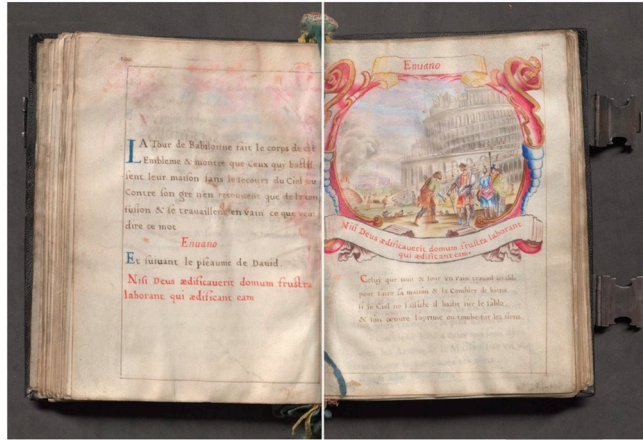 LA Tour de Babilonne fait le corps de cet
Embleme & montre que Ceux qui bastis
sent leur maison sans le secours du Ciel ou
Contre son gre n'en retirent que de la con
fusion & se travaillent en vain ce que veut
dire ce mot
Enuano
Et suiuant le pseaume de Dauid
Nisi Deus ædificauerit domum frustra
laborant qui ædificant eam
Enuano
Nisi Deus ædificauerit domum frustra laborant
qui ædificant eam
Celuy que nuit & iour un vain trauail
pour faire sa maison & la Combler de biens
si le Ciel ne l'assiste il bastit sur le sable
& son oeuure